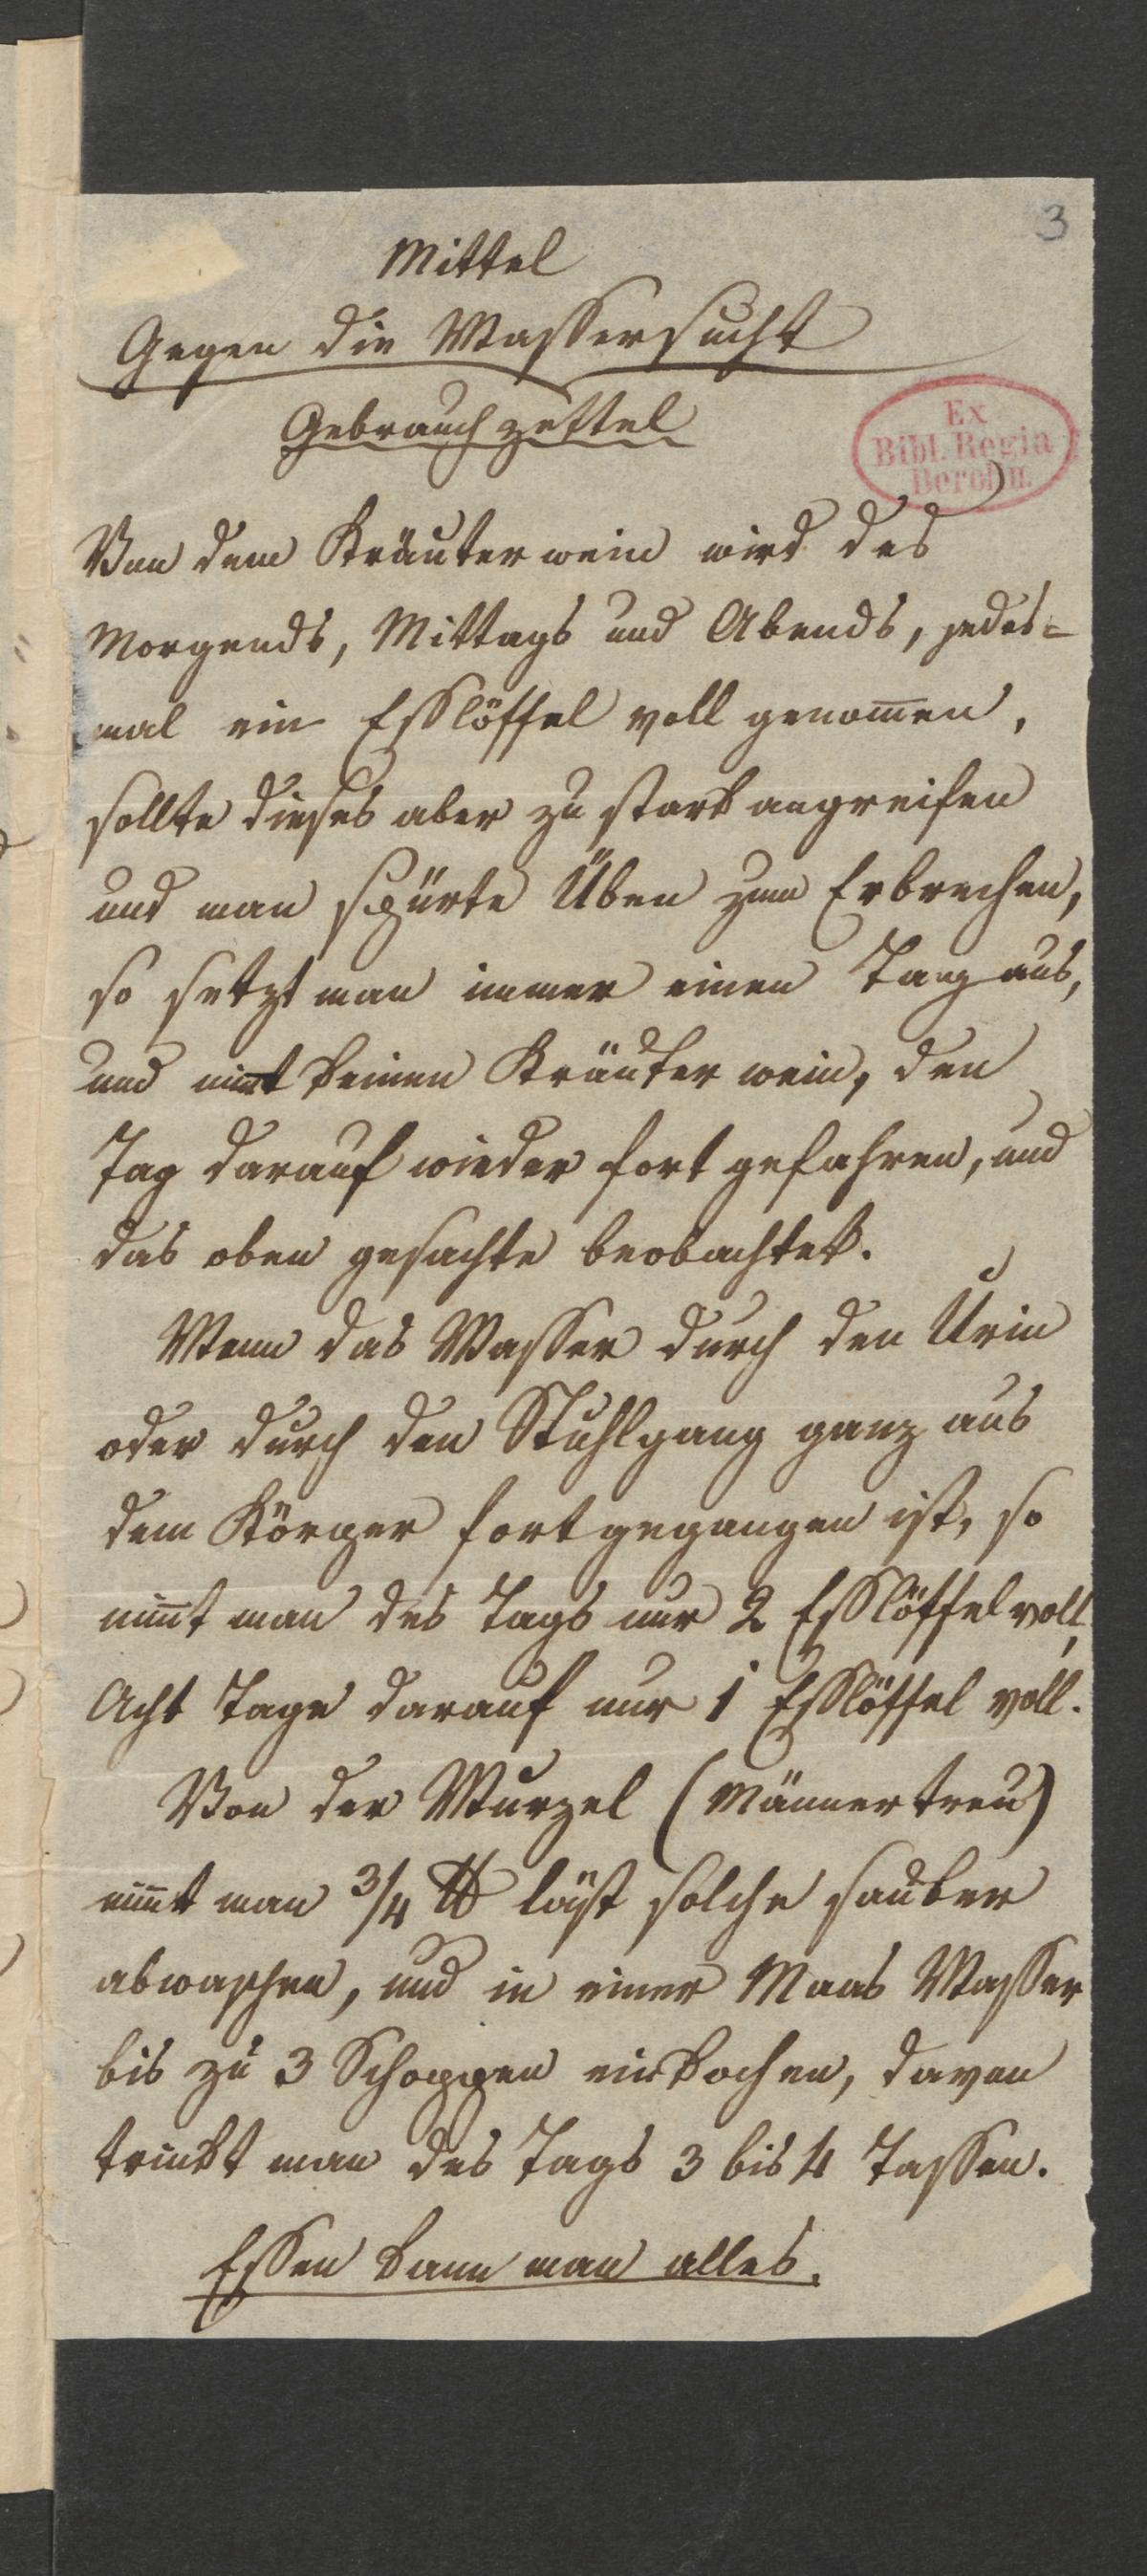 3
Mittel
Gegen die Wassersucht
Gebrauchzettel
Ex
Bibl. Regia
Berolin.
Von dem Kräuterwein wird des
Morgends, Mittags und Abends, jedes=
mal ein Esslöffel voll genom̅en,
sollte dieses aber zu stark angreifen
und man spürte Üben zum Erbrechen,
so setzt man immer einen Tag aus,
und nim̅t keinen Kräuter wein, den
Tag darauf wieder fort gefahren, und
das oben gesachte beobachtet.
Wenn das Wasser durch den Urin
oder durch den Stuhlgang ganz aus
dem Körper fortgegangen ist, so
nim̅t man des Tags nur 2 Esslöffel voll,
Acht Tage darauf nur 1 Esslöffel voll.
Von der Wurzel (Männertreu)
nim̅t man 3/4 ℔ läst solche sauber
abwaschen, und in einer Maas Wasser
bis zu 3 Schoppen einkochen, davon
trinkt man des Tags 3 bis 4 Tassen.
Essen kann man alles.